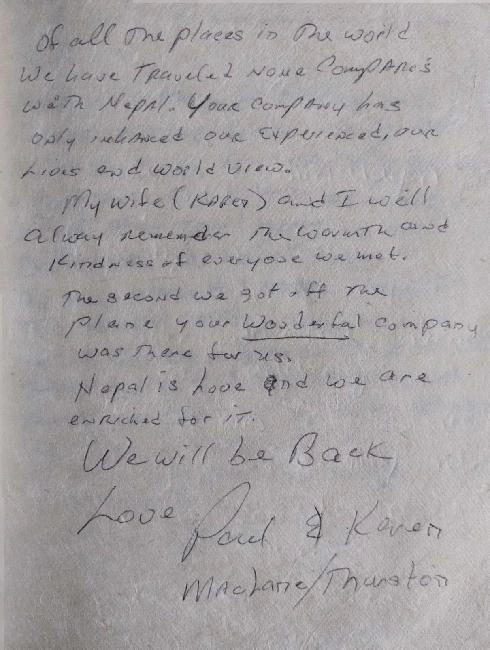 Of all the places in the world
We have Traveled none Compares
with Nepal. Your company has
only inhanced our Experienced, our
Lives and world view.
My wife (Karen) and I will
alway remember the warmth and
kindness of everyone we met.
The second we got off the
plane your Wonderful company
was there for us.
Nepal is Love and we are
enriched for it.
We will be Back
Love Paul & Karen
/Thurston